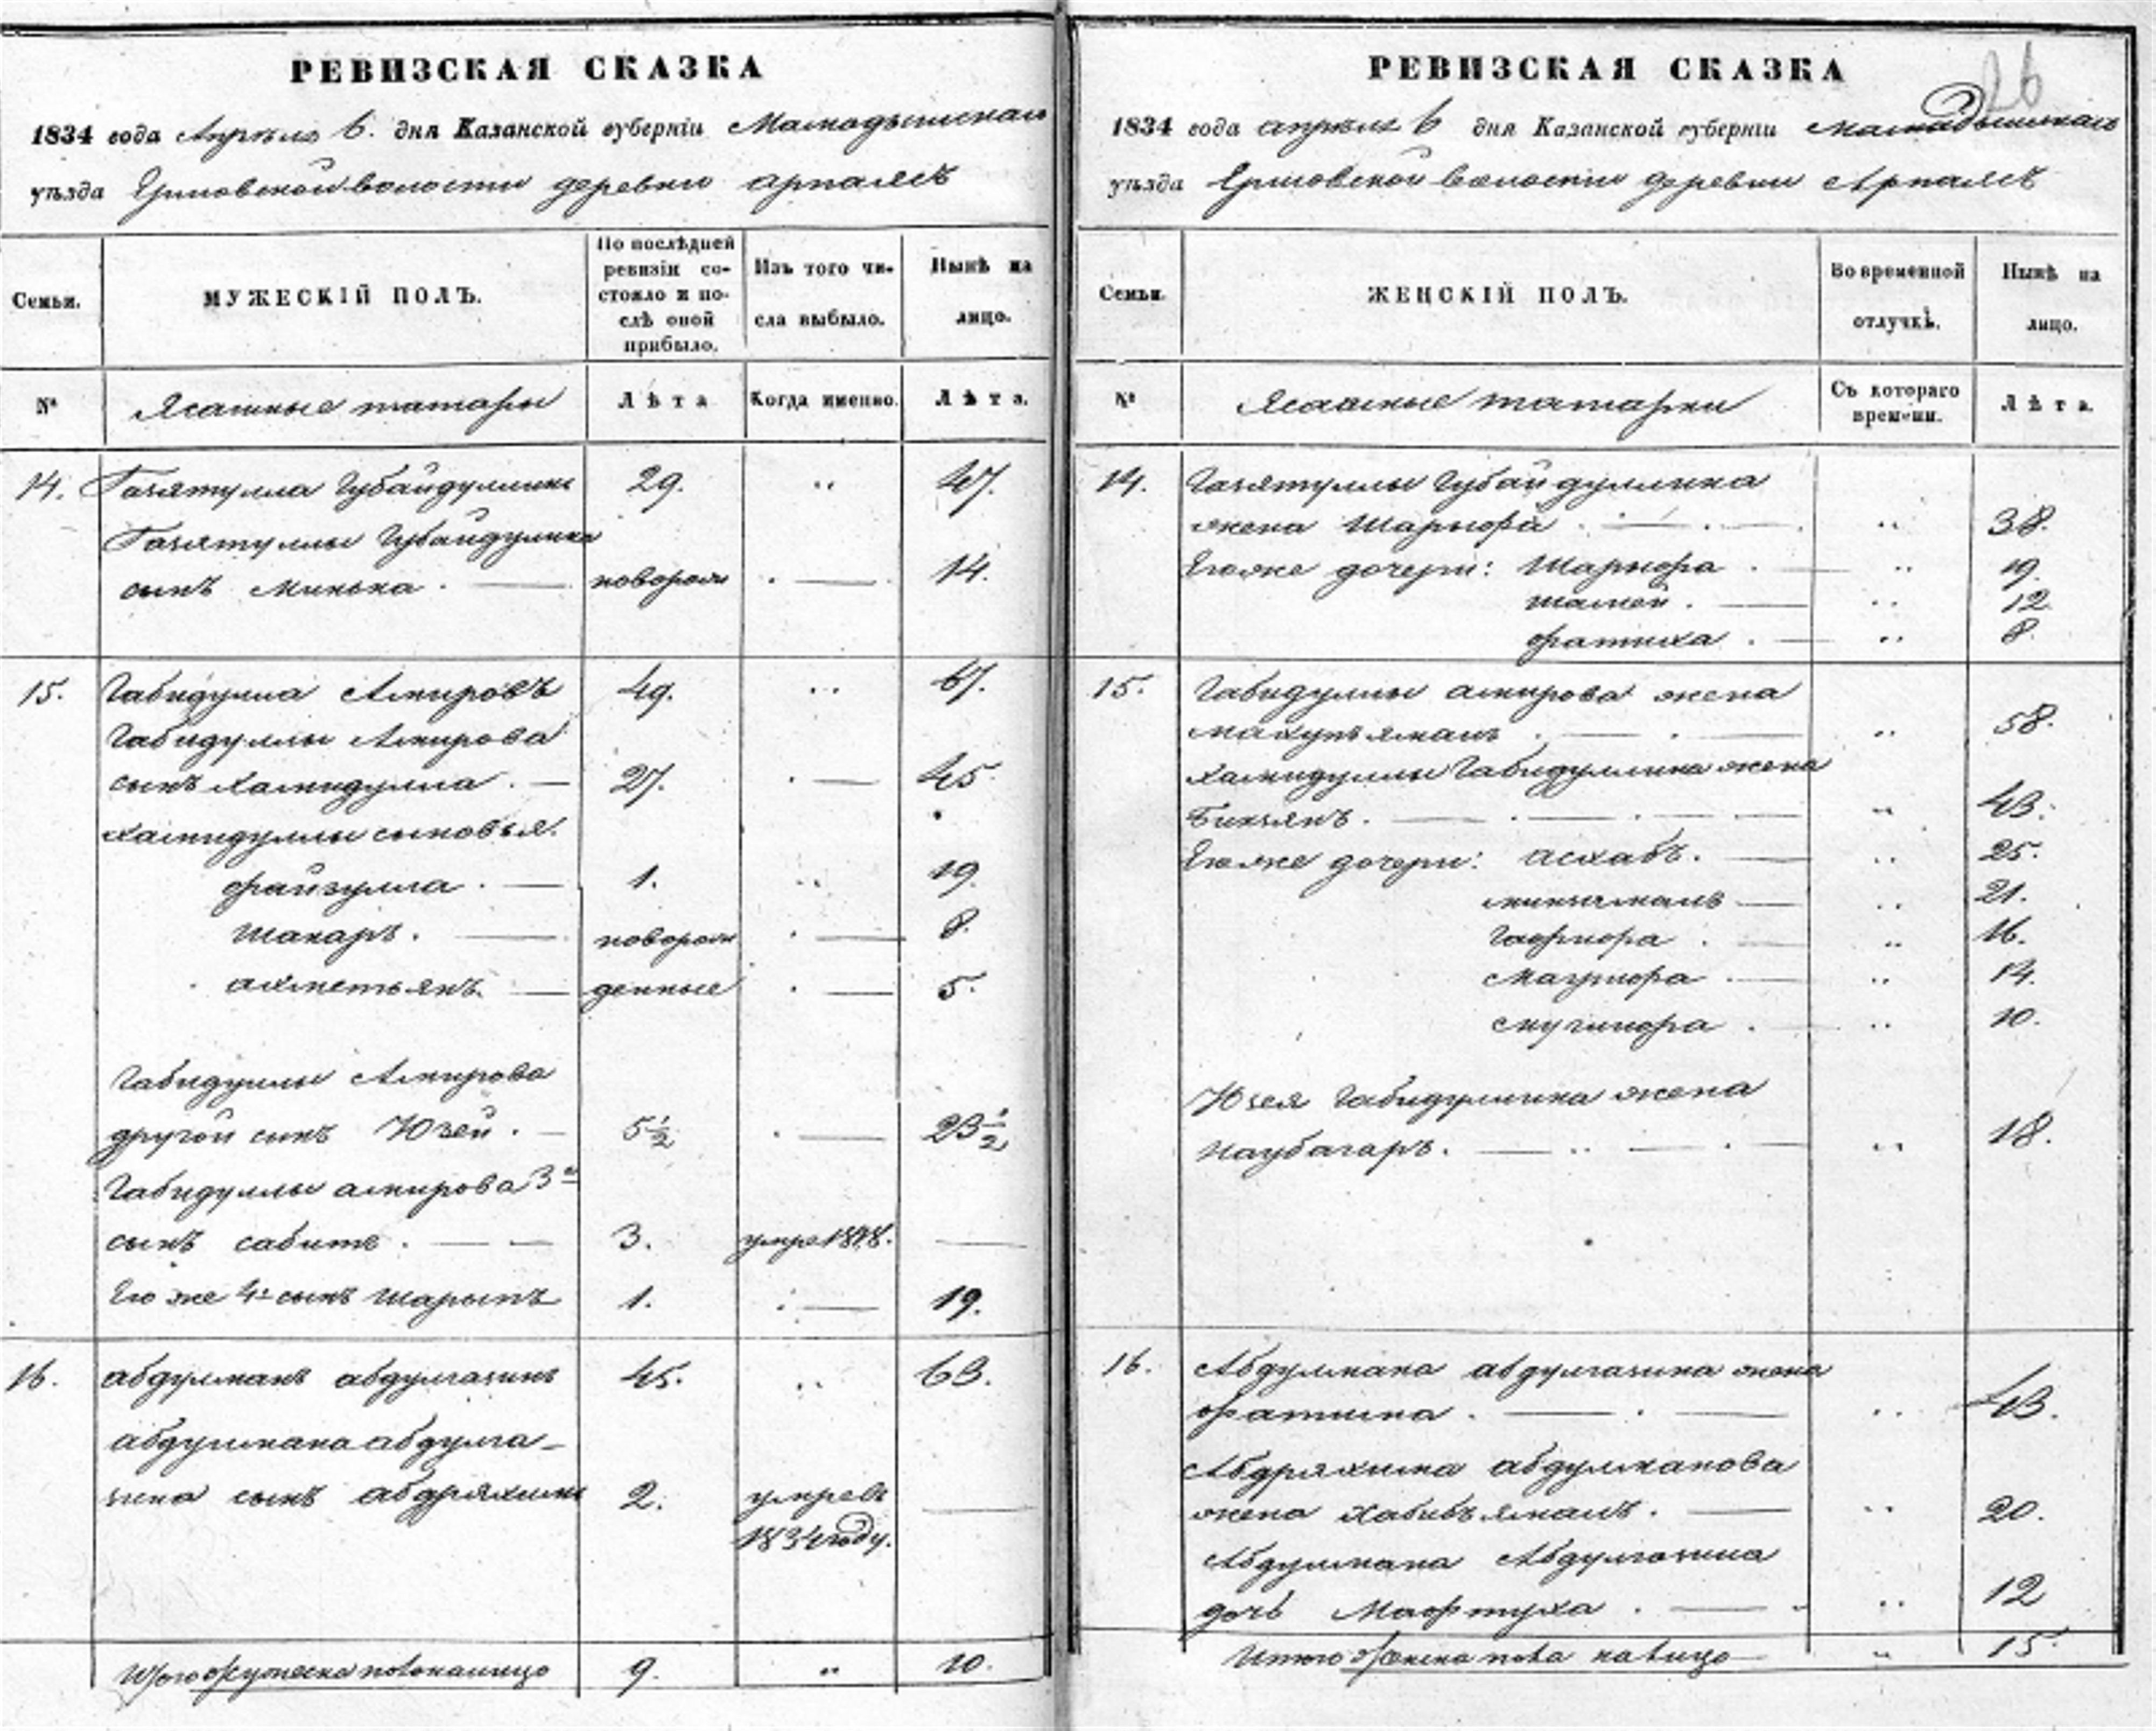 РЕВИЗСКАЯ СКАЗКА
1834 года Апреля 6. дня Казанской губернiи Мамадышскаго
уѣзда волости деревни Арпаясъ
Семьи.
МУЖЕСКIЙ ПОЛЪ.
По послѣдней
ревизiи со-
стояло и по-
слѣ оной
прибыло.
Изъ того чи-
сла выбыло.
Нынѣ на
лицо.
№
Ясашные татары
Лѣта
Когда именно.
Лѣта.
14. Газятулла Губайдуллинъ 29. " 47.
Газятуллы Губайдулина
сынъ Минька . — новорож . — 14.
15. Габидулла Амировъ 49. " 67.
Габидуллы Амирова
сынъ Хамидулла . — 27. . — 45.
Хамидуллы сыновья.
Файзулла . — 1. " 19.
Шакаръ . — новорож . — 8.
Ахметьянъ. — денные . — 5.
Габидуллы Амирова
другой сынъ Юзей . — 5½ . — 23½
Габидуллы Амирова 3й
сынъ Сабитъ . — — 3. —
Его же 4й сынъ Шарыпъ 1. . — 19.
16. Абдулманъ Абдулгазинъ 45. " 63.
Абдулмана Абдулга-
зина сынъ Абдряхимъ 2. умревъ —
1834 году.
Итого мужеска пола на лицо 9. " 10.
РЕВИЗСКАЯ СКАЗКА
26
1834 года апреля 6 дня Казанской губернiи Мамадышскаго
уѣзда волости деревни Арпаясъ
Семьи.
ЖЕНСКIЙ ПОЛЪ.
Во временной
отлучкѣ.
Нынѣ на
лицо.
№
Ясашные татарки
Съ котораго
времени.
Лѣта.
14. Газятуллы Губайдуллина
жена Шарифа . — . — " 38.
Его же дочери: . — " 19.
. — " 12.
Фатиха . — " 8.
15. Габидуллы Амирова жена
. — . — " 58.
Хамидуллы Габидуллина жена
Бикзянъ. — . — . — " 43.
Его же дочери: Асхабъ. — " 25.
— " 21.
. — " 16.
. — " 14.
. — " 10.
Юзея Габидуллина жена
Наубагаръ. — .. — . — " 18.
16. Абдулмана Абдулгазина жена
. — . — " 43.
Абдряхима Абдулманова
жена Хабибъямалъ. — " 20.
Абдулмана Абдулгазина
дочь Мафтуха . — " 12
Итого женска пола на лицо " 15